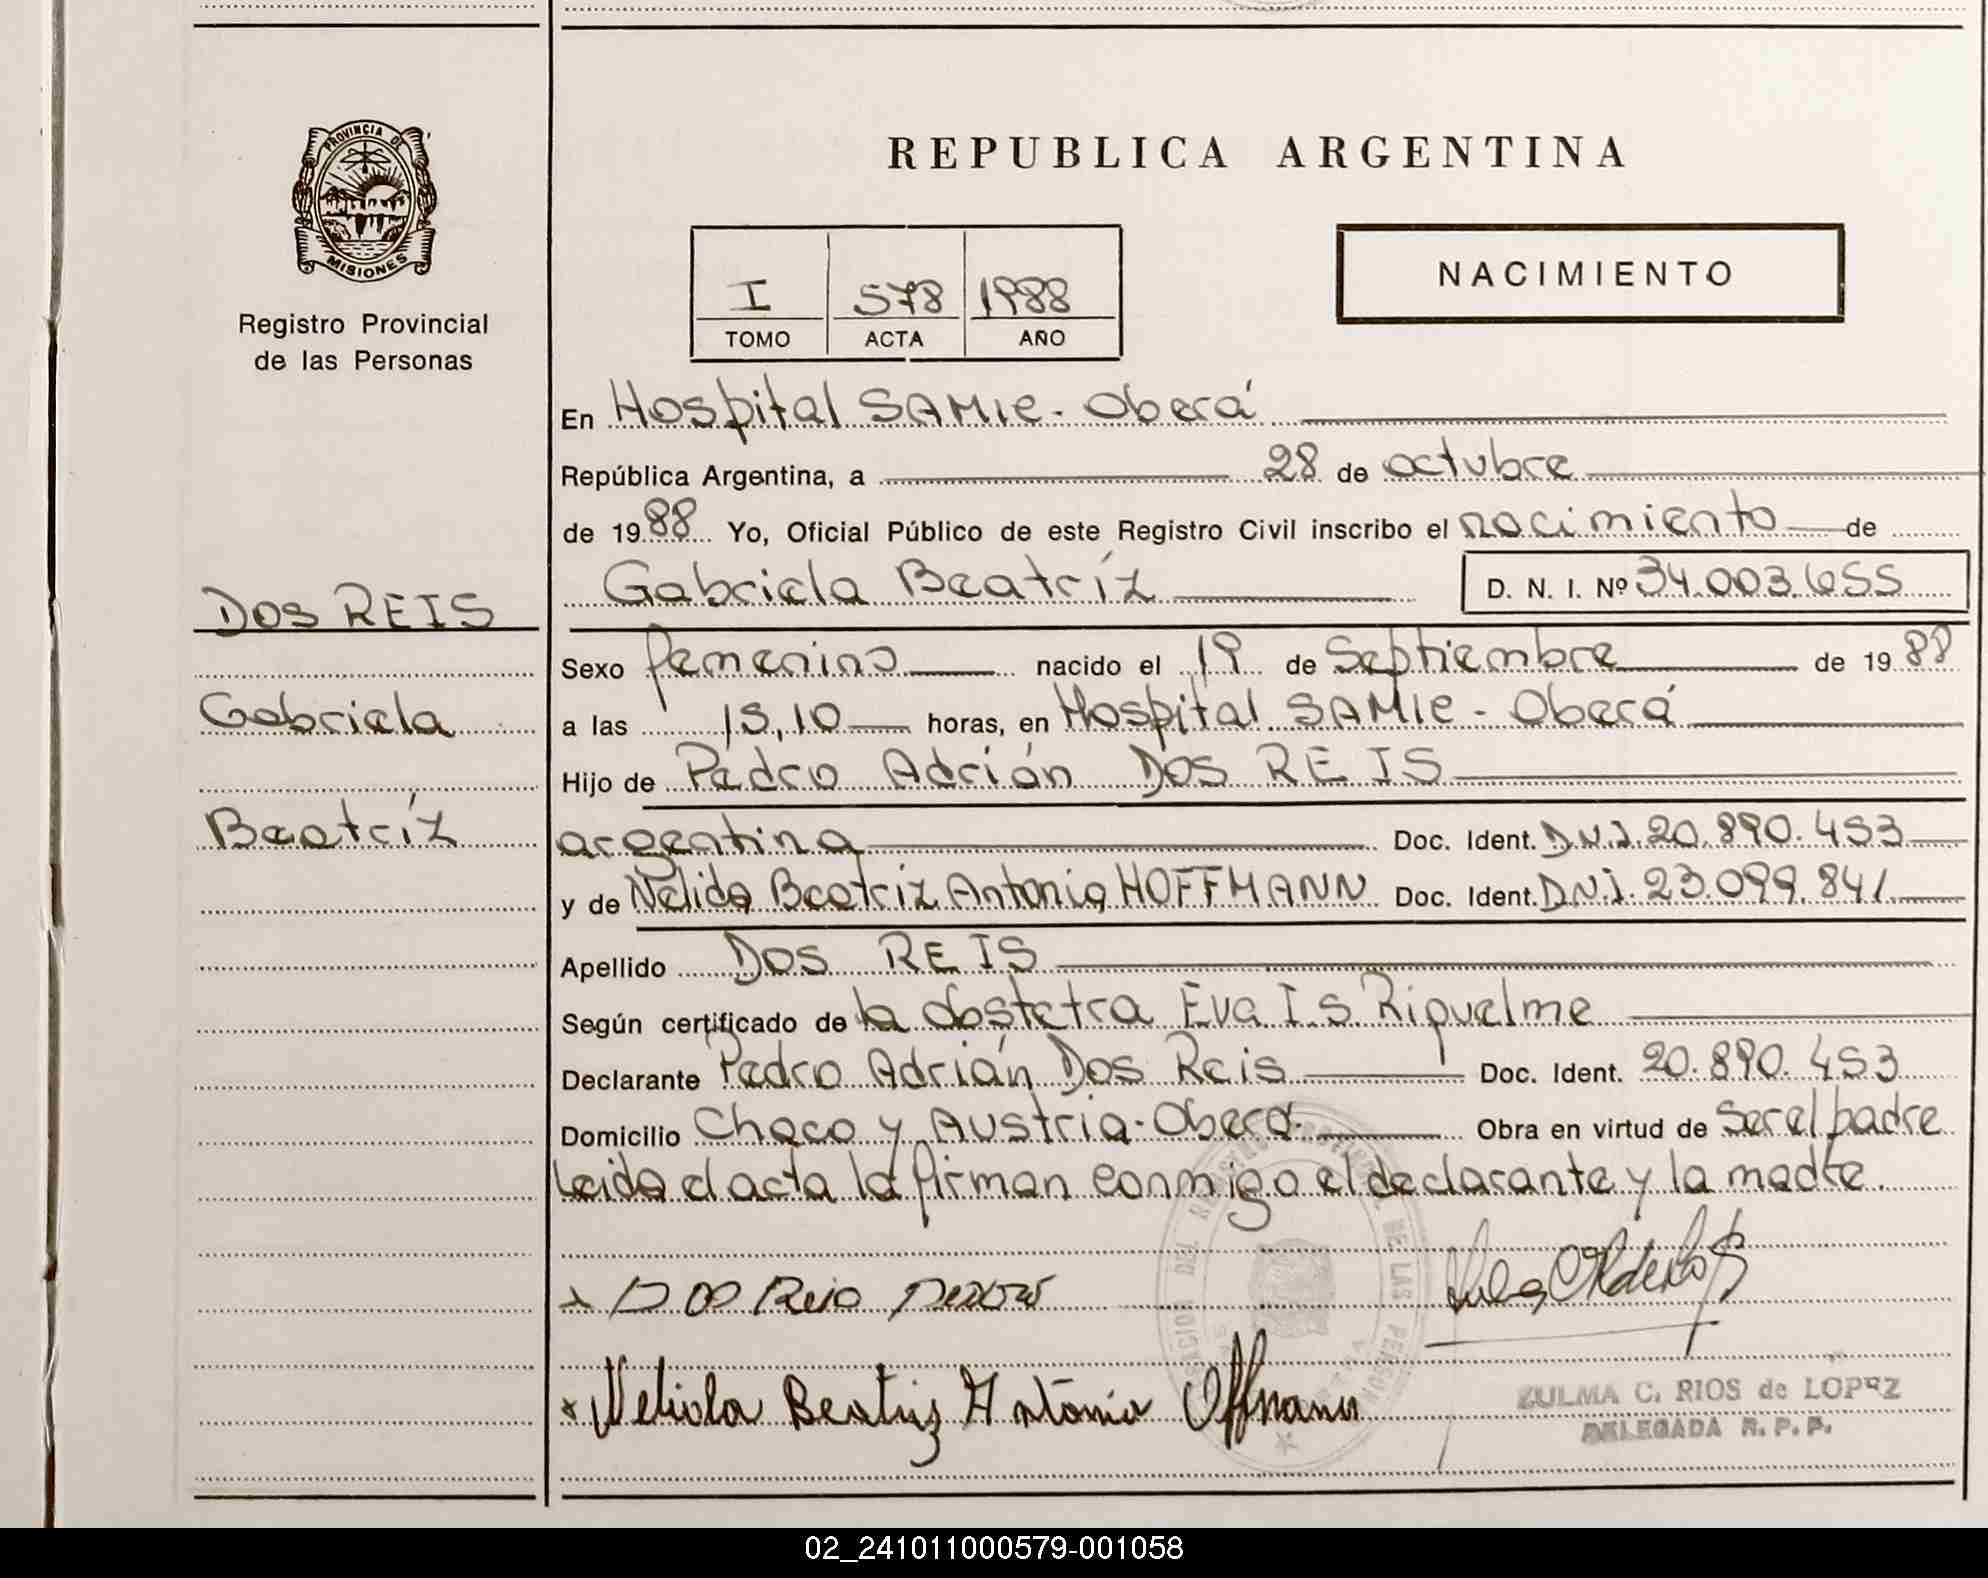 PROVINCIA DE
MISIONES
Registro Provincial
de las Personas
DOS REIS
Gabriela
Beatríz
REPUBLICA ARGENTINA
NACIMIENTO
I 578 1988
TOMO ACTA AÑO
En Hospital SAMIC - Oberá
República Argentina, a 28 de octubre
de 1988 Yo, Oficial Público de este Registro Civil inscribo el nacimiento de
Gabriela Beatríz D. N. I. Nº 34.003.655
Sexo femenino nacido el 19 de Septiembre de 1988
a las 15,10 horas, en Hospital SAMIC - Oberá
Hijo de Pedro Adrián DOS REIS
argentina Doc. Ident. D.N.I. 20.890.453
y de Nélida Beatriz Antonia HOFFMANN Doc. Ident. D.N.I. 23.099.841
Apellido DOS REIS
Según certificado de la obstetra Eva I.s Riquelme
Declarante Pedro Adrián Dos Reis Doc. Ident. 20.890.453
Domicilio Chaco y Austria - Oberá. Obra en virtud de ser el padre
Leida el acta la firman conmigo el declarante y la madre.
x Dos Reis Pedro
x Nelida Beatriz Antonia Offmann
ZULMA C. RIOS de LOPEZ
DELEGADA R. P. P.
02_241011000579-001058